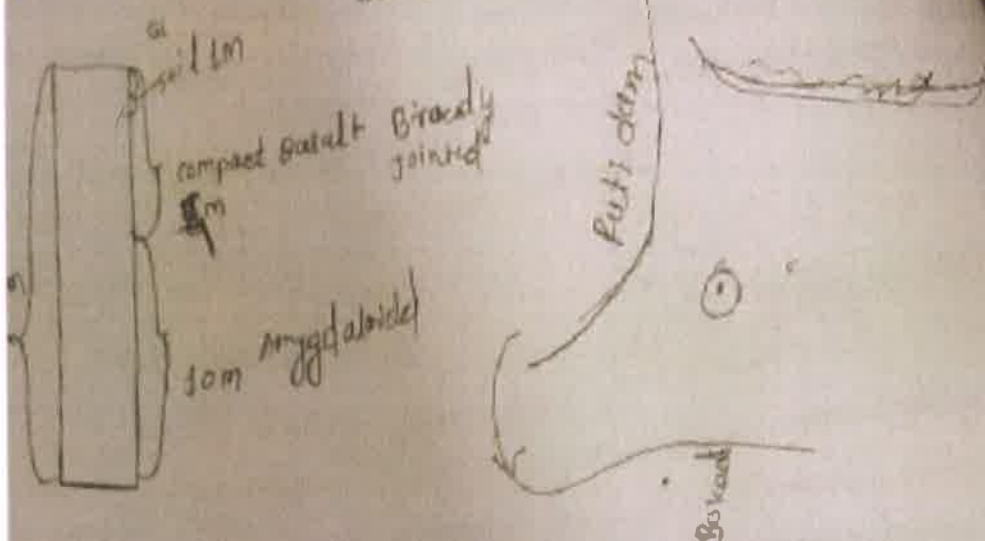 soil 1m
compact Basalt Broadly
jointed
m
10m Amygdaloidel
Puti dam